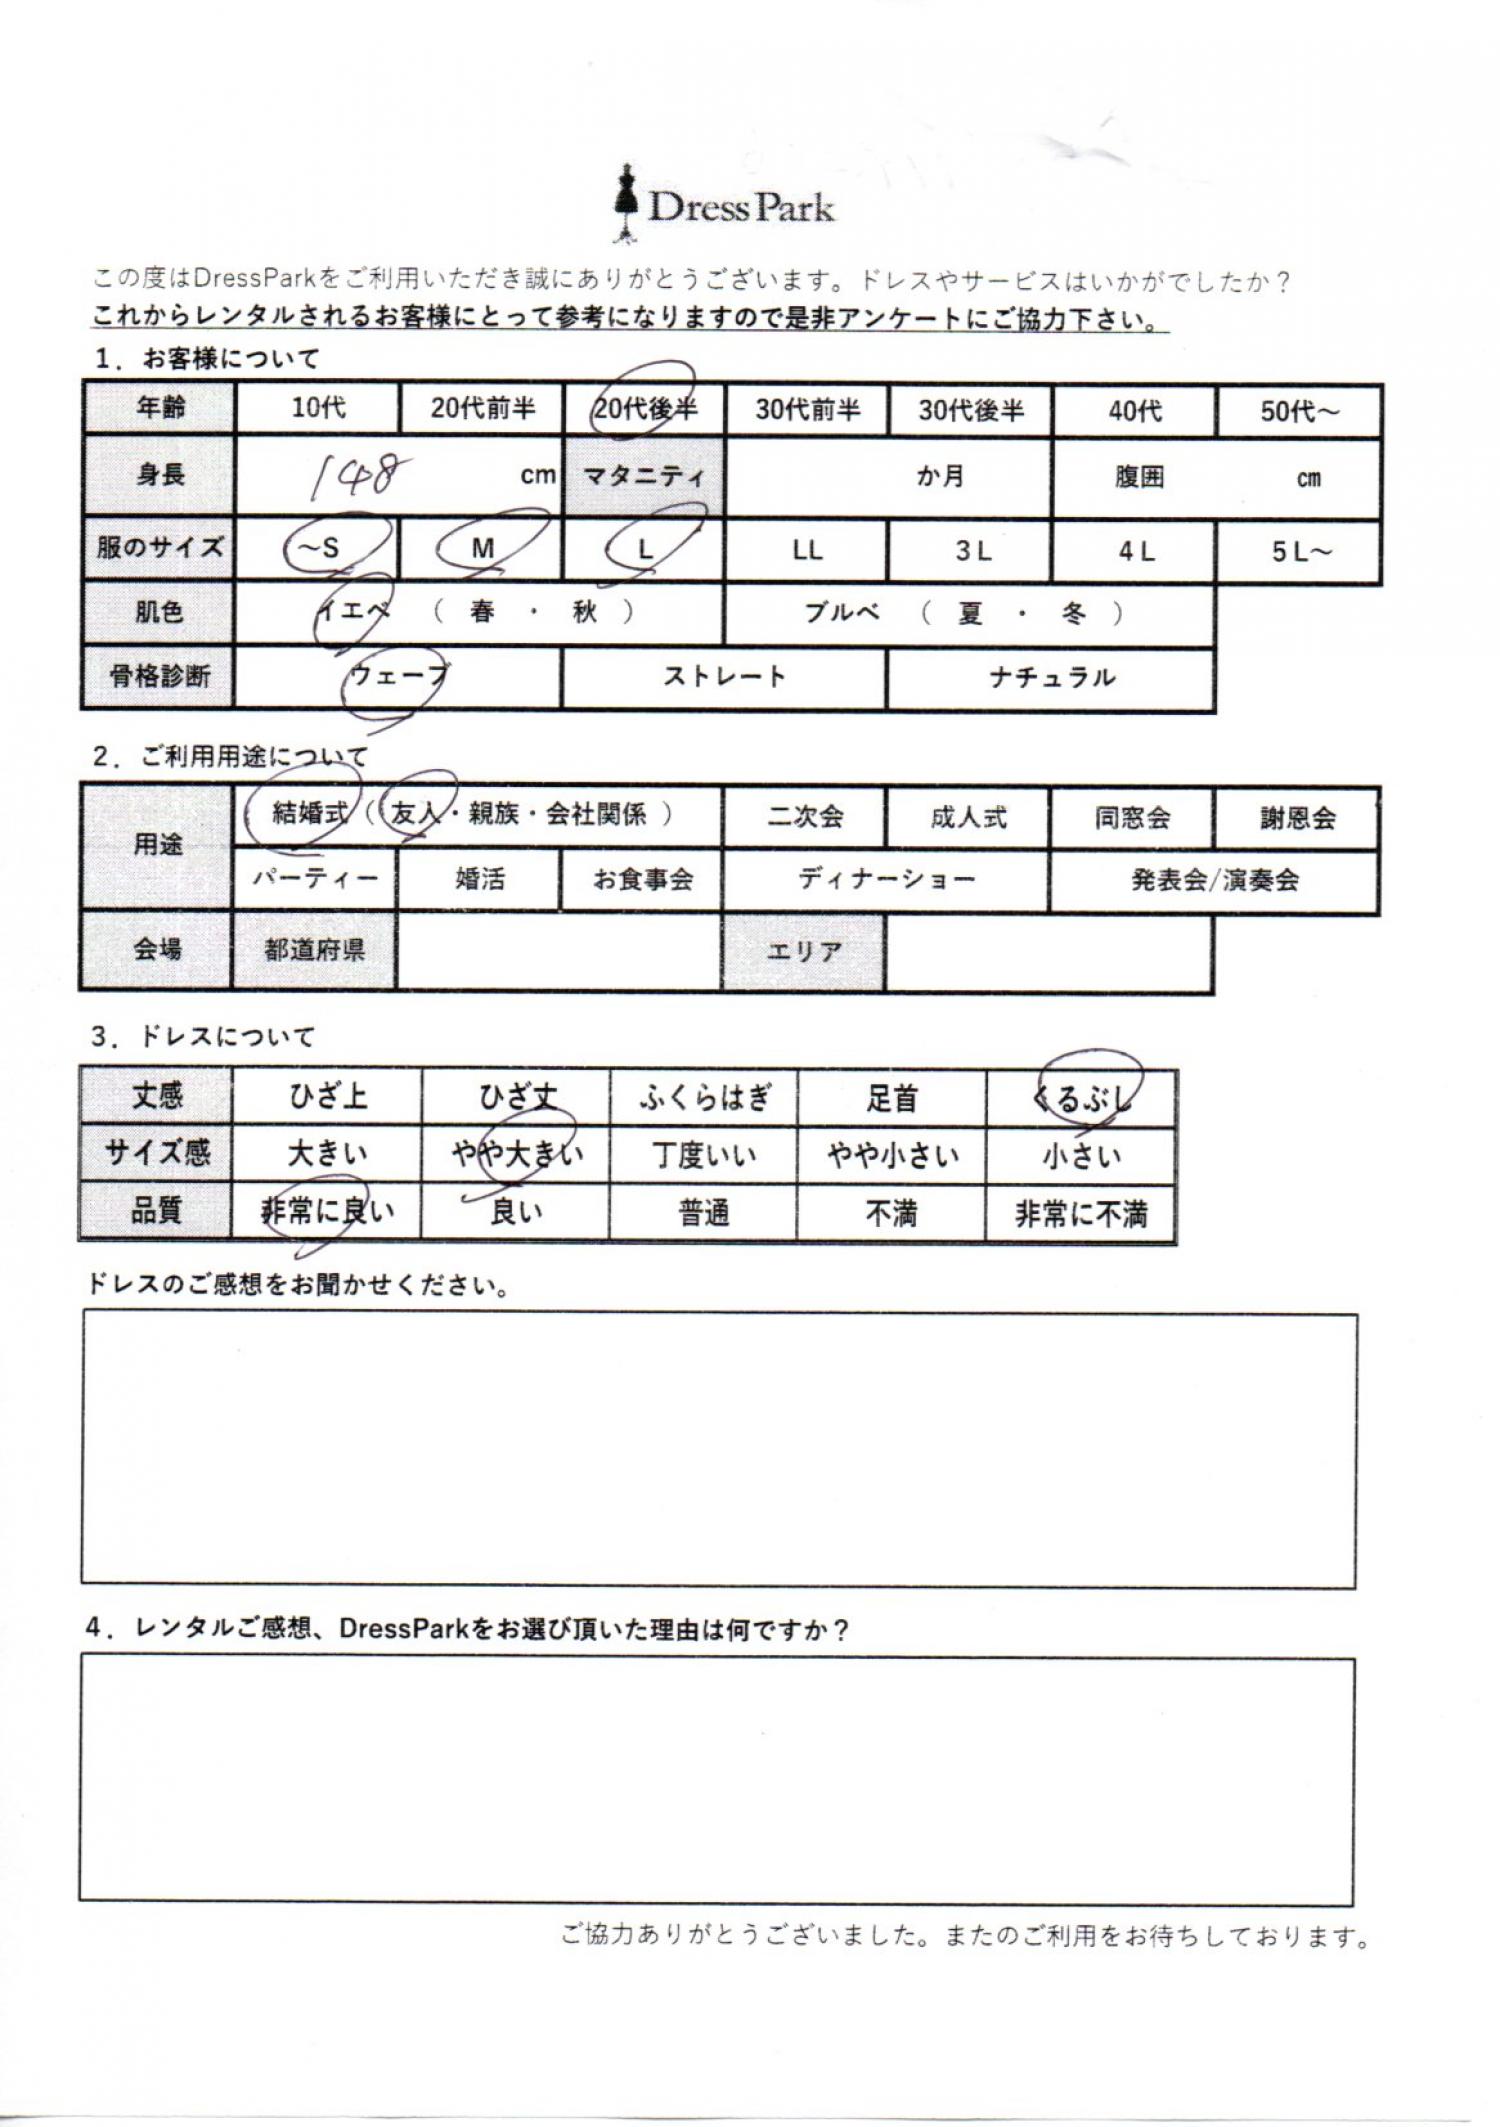 DressPark
この度はDressParkをご利用いただき誠にありがとうございます。ドレスやサービスはいかがでしたか？
これからレンタルされるお客様にとって参考になりますので是非アンケートにご協力下さい。
1．お客様について
年齢 10代 20代前半 20代後半 30代前半 30代後半 40代 50代～
身長 148 cm マタニティ か月 腹囲 cm
服のサイズ ～S M L LL 3L 4L 5L～
肌色 イエベ （ 春 ・ 秋 ） ブルベ （ 夏 ・ 冬 ）
骨格診断 ウェーブ ストレート ナチュラル
2．ご利用用途について
用途 結婚式（ 友人・親族・会社関係 ） 二次会 成人式 同窓会 謝恩会
パーティー 婚活 お食事会 ディナーショー 発表会/演奏会
会場 都道府県 エリア
3．ドレスについて
丈感 ひざ上 ひざ丈 ふくらはぎ 足首 くるぶし
サイズ感 大きい やや大きい 丁度いい やや小さい 小さい
品質 非常に良い 良い 普通 不満 非常に不満
ドレスのご感想をお聞かせください。
4．レンタルご感想、DressParkをお選び頂いた理由は何ですか？
ご協力ありがとうございました。またのご利用をお待ちしております。